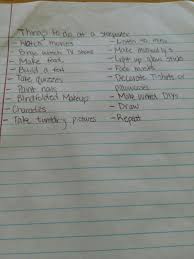 Things to do at a sleepover
- Watch movies
- Binge watch TV shows
- Make food
- Build a fort
- Take quizzes
- Paint nails
- Blindfolded Makeup
- Charades
- Take tumblr pictures
- Listen to music
- Make
- Light up glow sticks
- Face masks
- Decorate T-shirts or pillowcases
- Make weird DIYs
- Draw
- Repeat